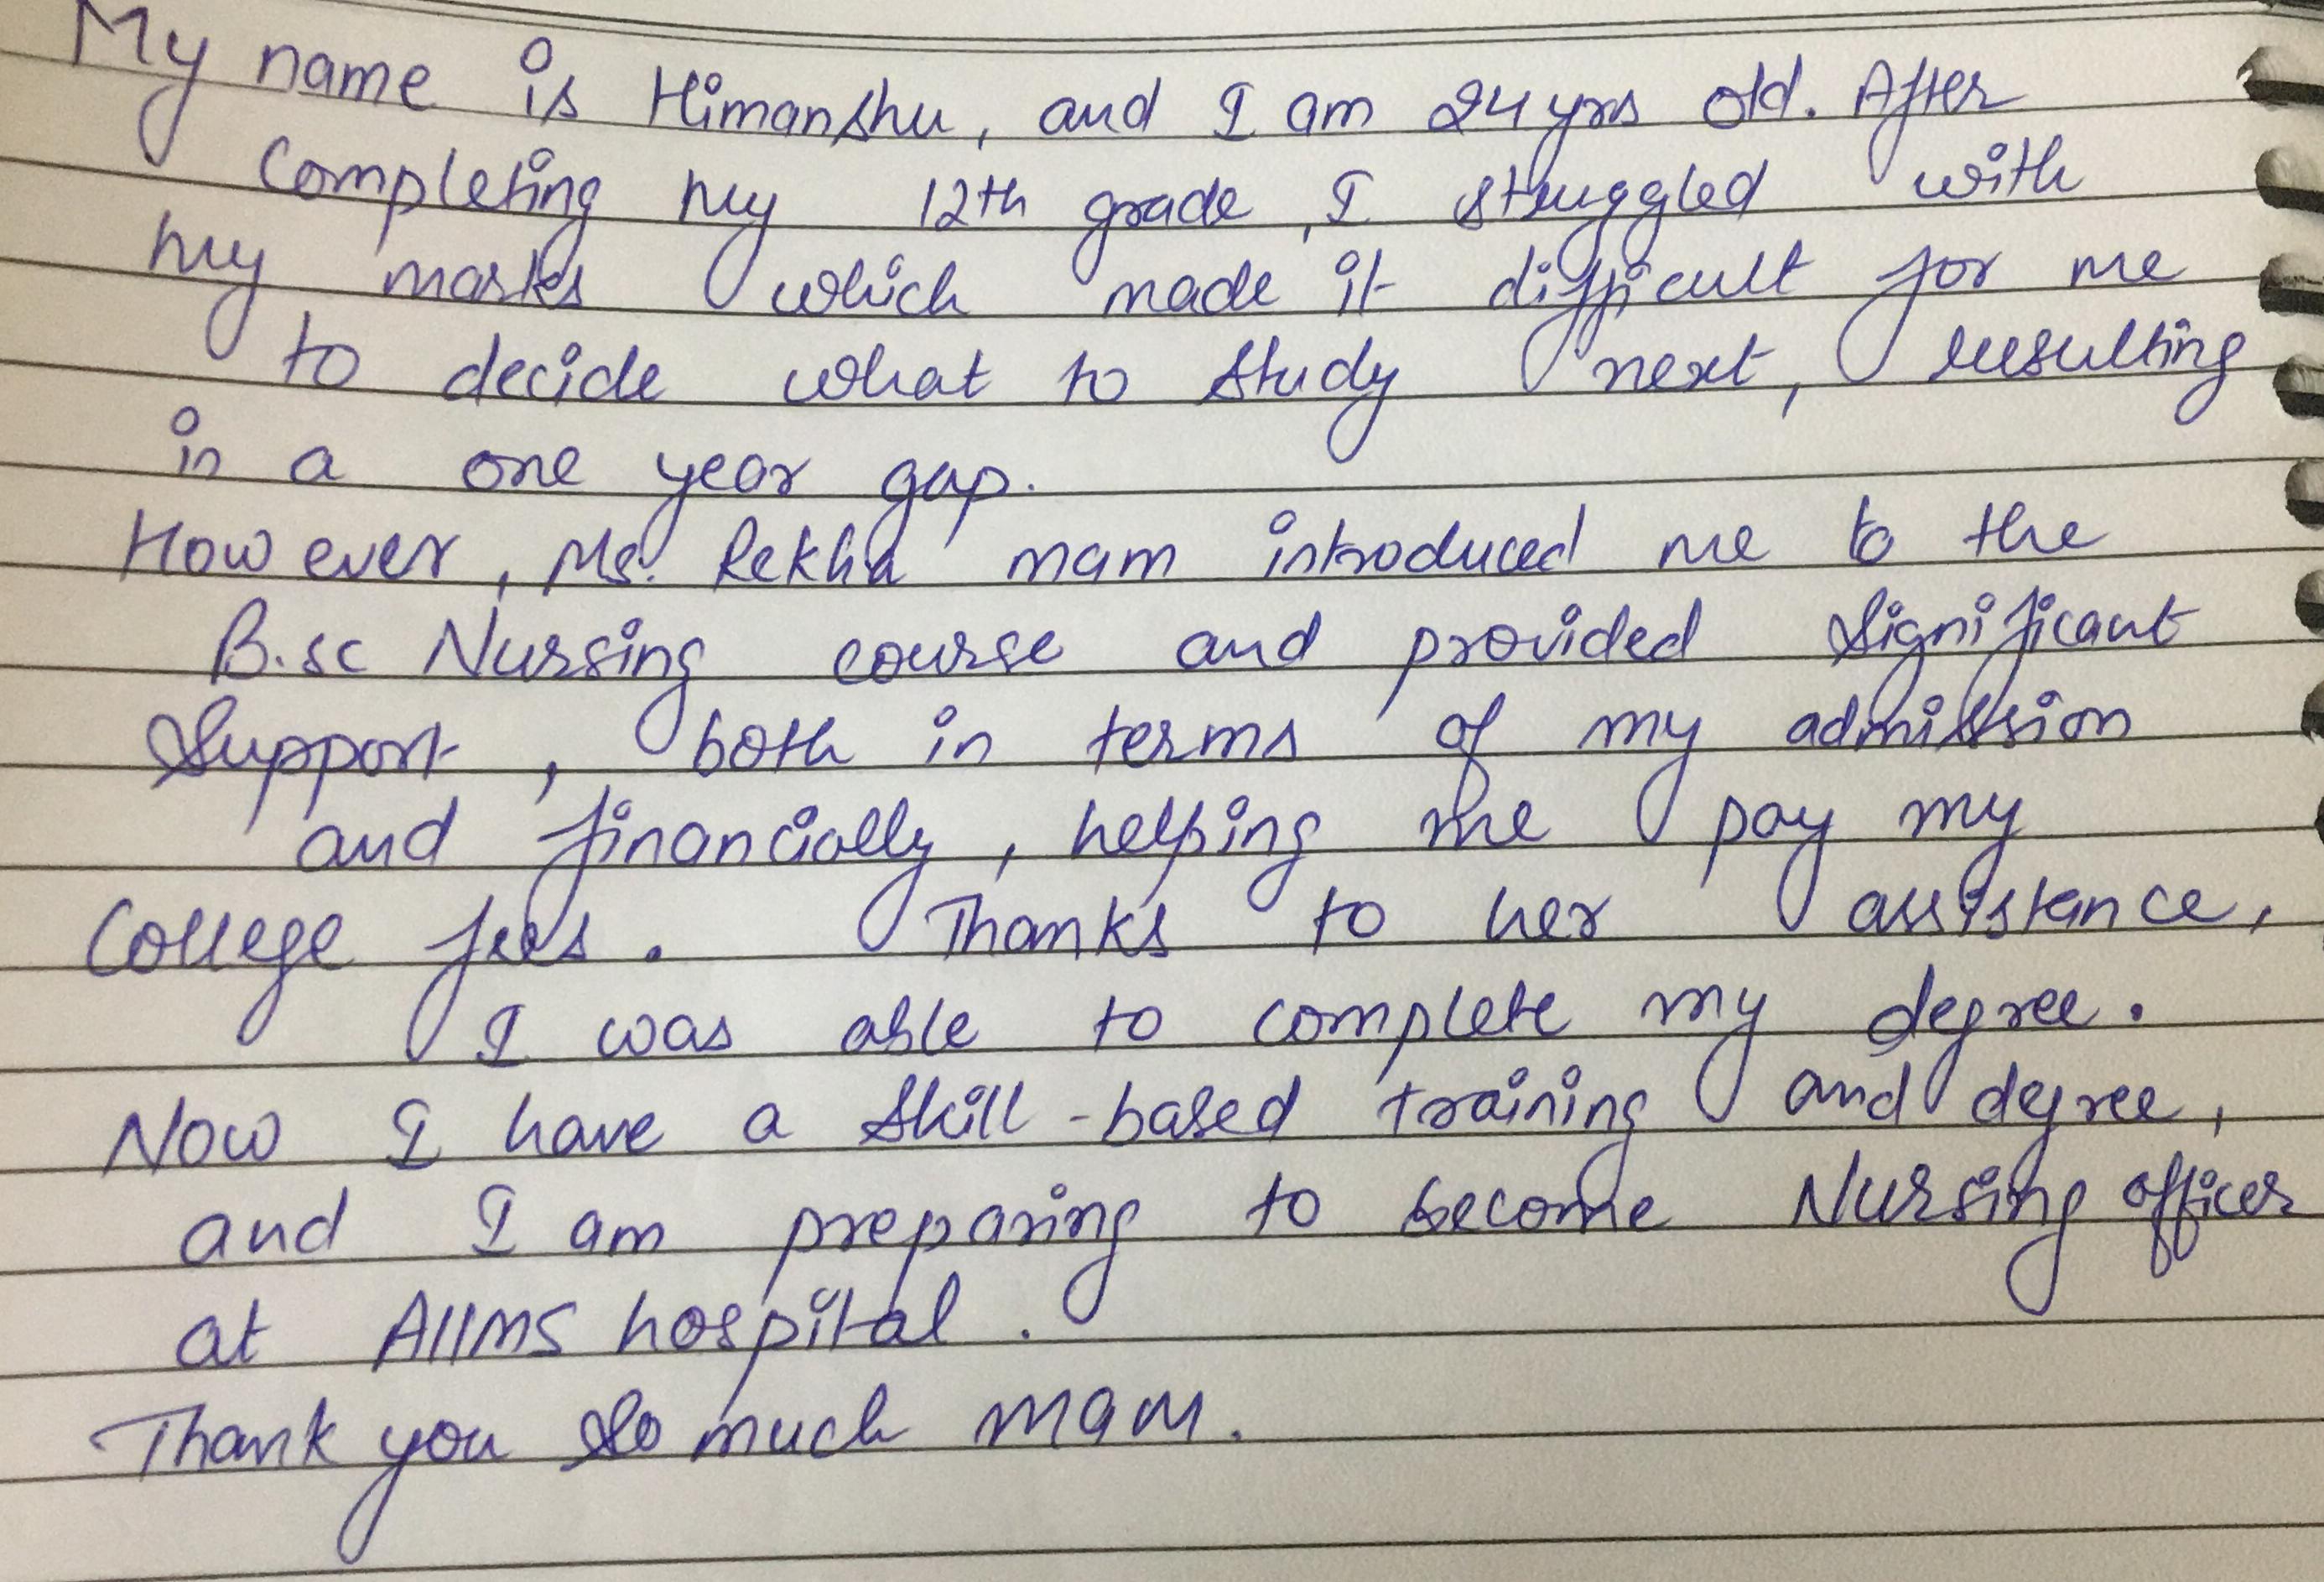 My name is Himanshu, and I am 24 yrs old. After
Completing my 12th grade, I struggled with
my marks which made it difficult for me
to decide what to study next, resulting
in a one year gap.
However, Ms. Rekha mam introduced me to the
B.sc Nursing course and provided significant
Support, both in terms of my admission
and financially, helping me pay my
College fees. Thanks to her assistance,
I was able to complete my degree.
Now I have a skill-based training and degree,
and I am preparing to become Nursing officer
at AIIMS hospital.
Thank you so much mam.